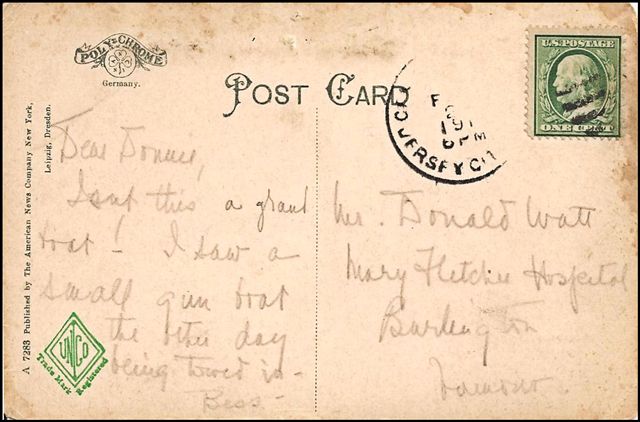 POLY-CHROME
Germany.
POST CARD
U.S. POSTAGE
ONE CENT
JERSEY CITY
F
191
6 PM
A 7283 Published by The American News Company New York,
Leipzig, Dresden.
Dear Donnie,
Isnt this a grand
boat! I saw a
small gun boat
the other day
being towed in-
Bess-
Mr. Donald Watt
Mary Fletcher Hospital
Burlington
Vermont.
UNCO
Trade Mark Registered